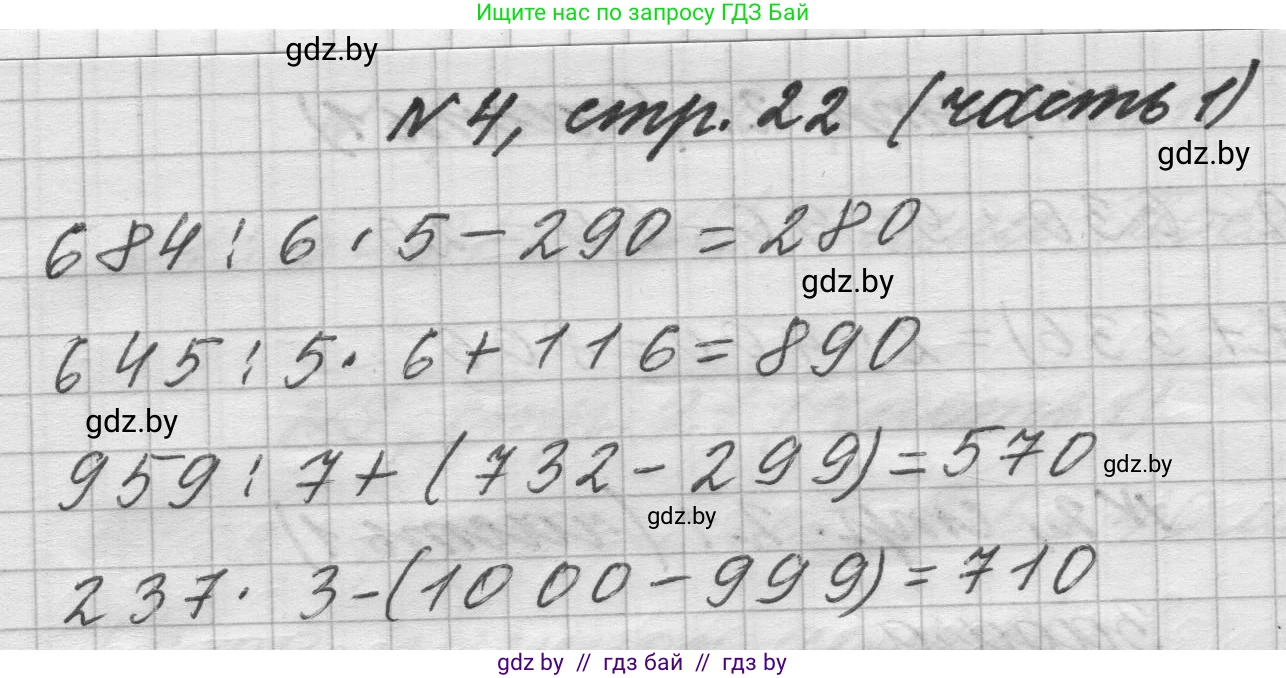 Ищите нас по запросу ГДЗ Бай
gdz.by
№ 4, стр. 22 (часть 1)
gdz.by
684 : 6 · 5 - 290 = 280
gdz.by
645 : 5 · 6 + 116 = 890
gdz.by
959 : 7 + (732 - 299) = 570
gdz.by
gdz.by
237 · 3 - (1000 - 999) = 710
gdz by // гдз бай // гдз by